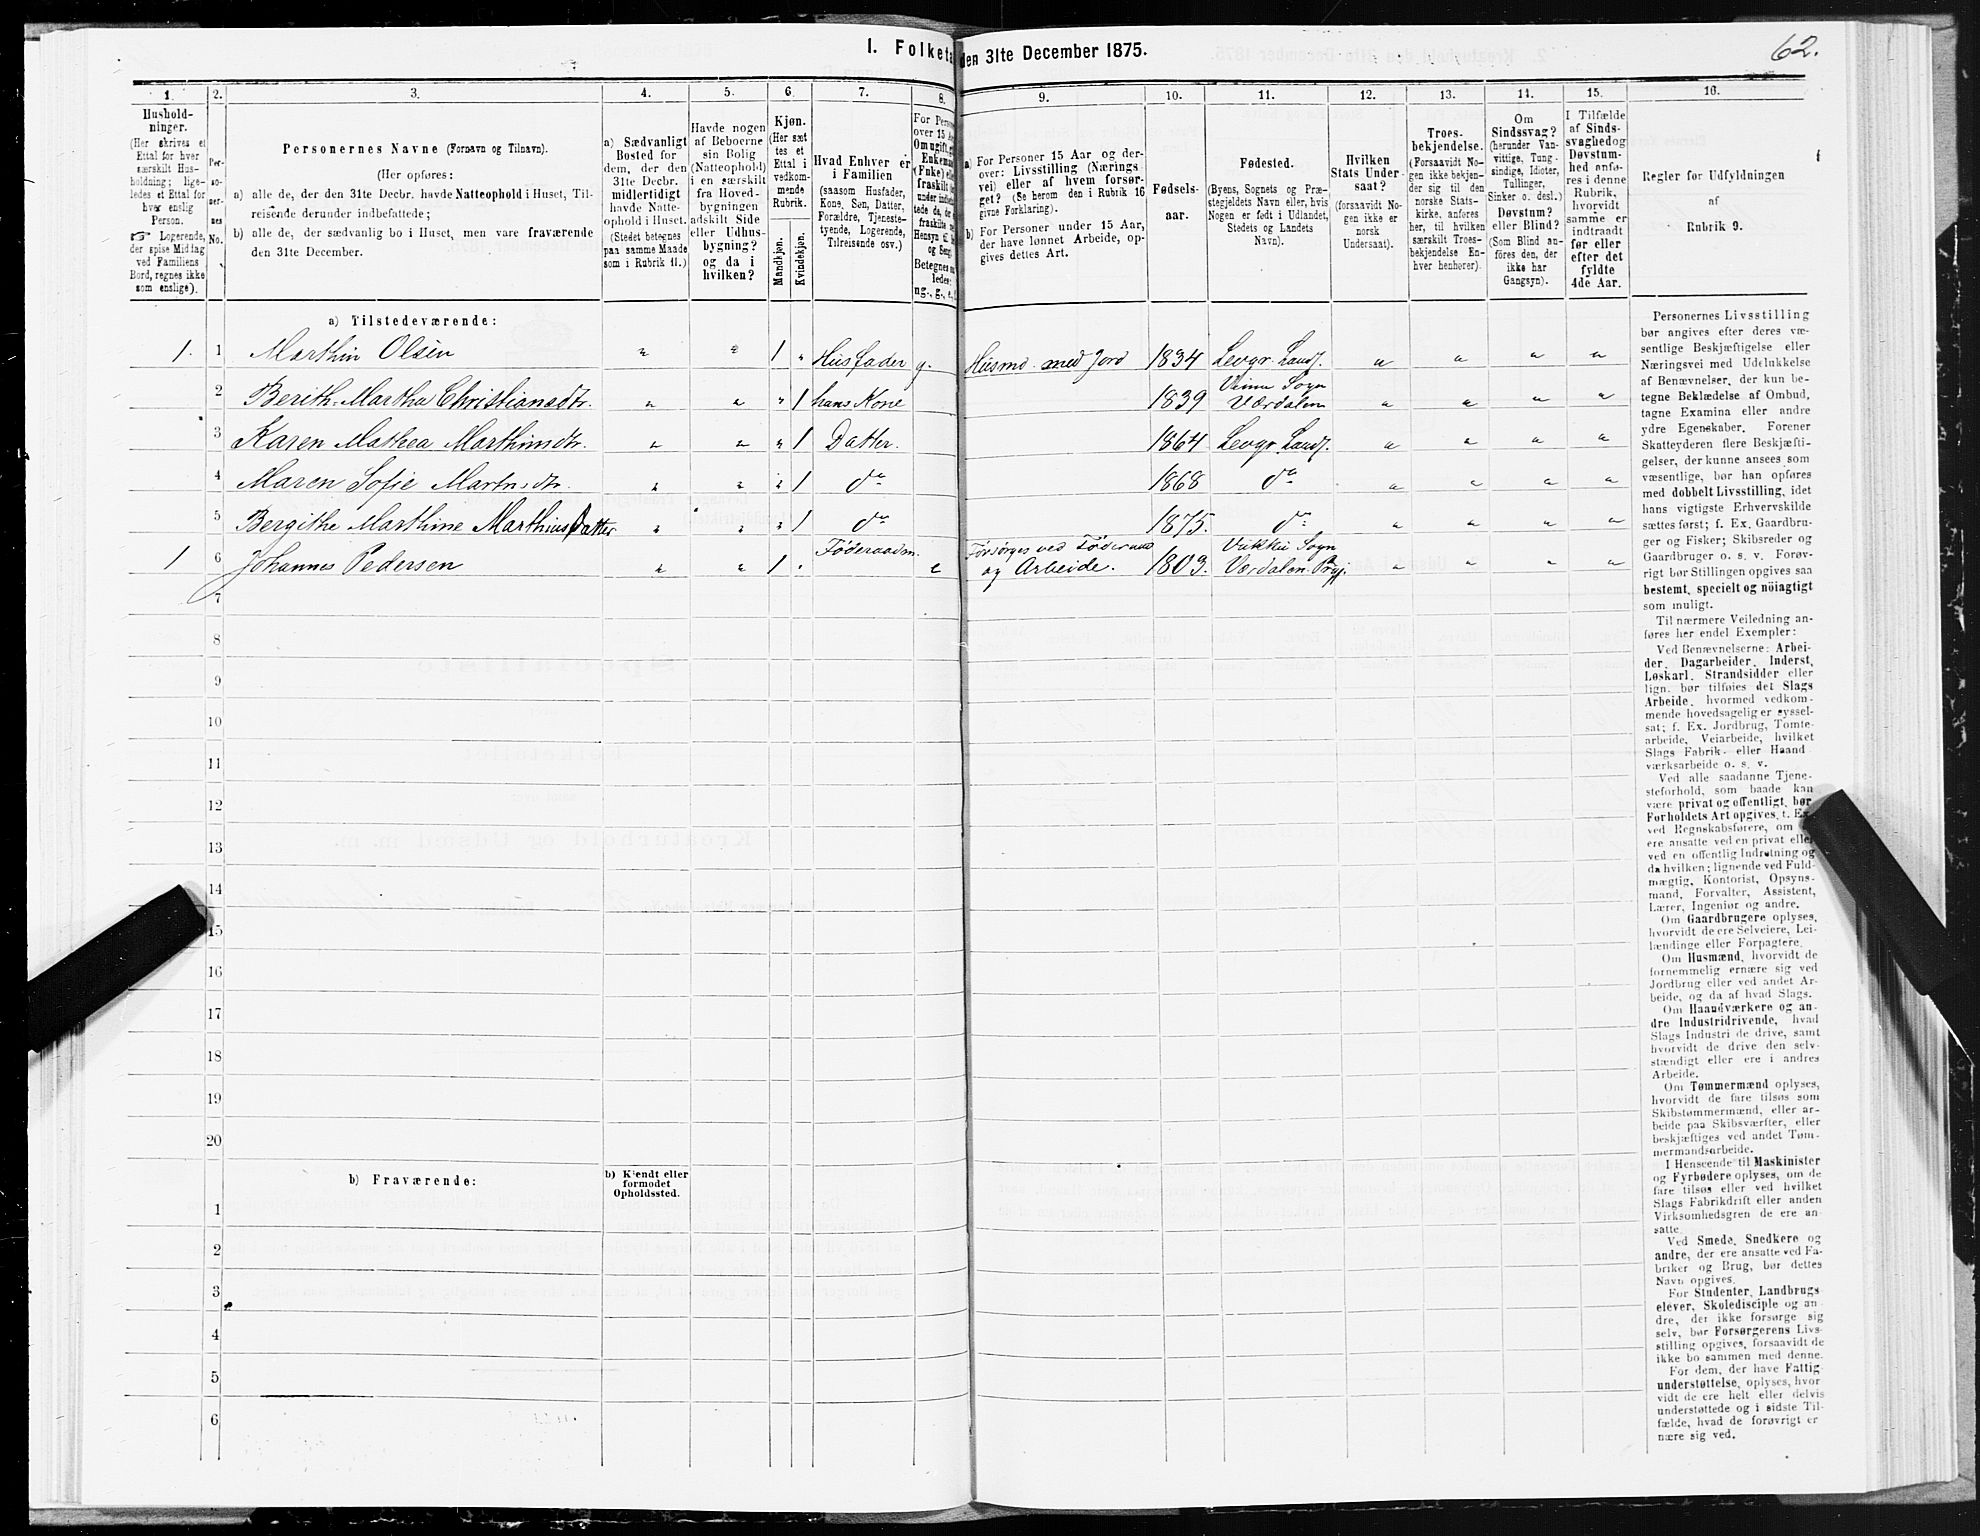 I. Folketa
den 31te December 1875.
62.
1.
2.
3.
4.
5.
6.
7.
8.
9.
10.
11.
12.
13.
14.
15.
16.
Hushold-
ninger.
(Her skrives et
Ettal for hver
særskilt Hus-
holdning; lige-
ledes et Ettal for
hver enslig
Person.
☞ Logerende,
der spise Middag
ved Familiens
Bord, regnes ikke
som enslige).
Per-
so-
ner-
nes
No.
Personernes Navne (Fornavn og Tilnavn).
(Her opføres:
a) alle de, der den 31te Decbr. havde Natteophold i Huset, Til-
reisende derunder indbefattede;
b) alle de, der sædvanlig bo i Huset, men vare fraværende
den 31te December.
a) Sædvanligt
Bosted for
dem, der den
31te Decbr.
midlertidigt
havde Natte-
ophold i Huset.
(Stedet betegnes
paa samme Maade
som i Rubrik 11.)
Havde nogen
af Beboerne
sin Bolig
(Natteophold)
i en særskilt
fra Hoved-
bygningen
adskilt Side
eller Udhus-
bygning?
og da i
hvilken?
Kjøn.
(Her sæt
tes et
Ettal i
vedkom-
mende
Rubrik.
Mandkjøn.
Kvindekjøn.
Hvad Enhver er
i Familien
(saasom Husfader,
Kone, Søn, Datter,
Forældre, Tjeneste-
tyende, Logerende,
Tilreisende osv.)
For Perso
over 15 Aa
Om ugift, g
Enkeman
(Enke) el
fraskilt
under indbe
tede de, der
fraskilte
Hensyn til
og Seng
Betegnes s
ledes:
ug., g., e., f
a) For Personer 15 Aar og der-
over: Livsstilling (Nærings-
vei) eller af hvem forsør-
get? (Se herom den i Rubrik 16
givne Forklaring).
b) For Personer under 15 Aar,
der have lønnet Arbeide, op-
gives dettes Art.
Fødsels-
aar.
Fødested.
(Byens, Sognets og Præ-
stegjeldets Navn eller, hvis
Nogen er født i Udlandet,
Stedets og Landets
Navn).
Hvilken
Stats Under-
saat?
(forsaavidt No-
gen ikke er
norsk
Undersaat).
Troes-
bekjendelse.
(Forsaavidt No-
gen ikke bekjen-
der sig til den
norske Stats-
kirke, anføres
her, til hvilken
særskilt Troes-
bekjendelse En-
hver henhører).
Om
Sindssvag?
(herunder Van-
vittige, Tung-
sindige, Idioter,
Tullinger,
Sinker o. desl.)
Døvstum?
eller Blind?
(Som Blind an-
føres den, der
ikke har
Gangsyn).
I Tilfælde
af Sinds-
svaghed og
Døvstum-
hed anfø-
res i denne
Rubrik,
hvorvidt
samme er
indtraadt
før eller
efter det
fyldte
4de Aar.
Regler for Udfyldningen
af
Rubrik 9.
a) Tilstedeværende:
1. 1 Marthin Olsen " " 1 " Husfader g. Husmd med Jord 1834 Levgr. Landf. " " " "
2 Berith-Martha Christiansdtr. " " " 1 hans Kone 1839 Vinne Sogn Værdalen " " " "
3 Karen Mathea Marthinsdtr. " " " 1 Datter. 1864 Levgr. Landf. " " " "
4 Maren Sofie Martnsdtr. " " " 1 do 1868 do " " " "
5 Bergithe Marthine MarthinsDatter " " " 1 do 1875. do " " " "
1 6 Johannes Pedersen " " 1 . Føderaadm. e Forsørges ved Føderaad og Arbeide. 1803. Vukku Sogn Værdalen Prgj. " " " "
7
8
9
10
11
12
13
14
15
16
17
18
19
20
b) Fraværende:
b) Kjendt eller
formodet
Opholdssted.
1
2
3
4
5
6
Personernes Livsstilling
bør angives efter deres væ-
sentlige Beskjæftigelse eller
Næringsvei med Udelukkelse
af Benævnelser, der kun be-
tegne Beklædelse af Ombud,
tagne Examina eller andre
ydre Egenskaber. Forener
Skatteyderen flere Beskjæfti-
gelser, der kunne ansees som
væsentlige, bør han opføres
med dobbelt Livsstilling, idet
hans vigtigste Erhvervskilde
sættes først; f. Ex. Gaardbru-
ger og Fisker; Skibsreder og
Gaardbruger o. s. v. Forøv-
rigt bør Stillingen opgives saa
bestemt, specielt og nöiagtigt
som muligt.
Til nærmere Veiledning an-
føres her endel Exempler:
Ved Benævnelserne: Arbei-
der, Dagarbeider, Inderst,
Løskarl, Strandsidder eller
lign. bør tilføies det Slags
Arbeide, hvormed vedkom-
mende hovedsagelig er syssel-
sat; f. Ex. Jordbrug, Tomte-
arbeide, Veiarbeide, hvilket
Slags Fabrik- eller Haand
værksarbeide o. s. v.
Ved alle saadanne Tjene-
steforhold, som baade kan
være privat og offentligt, bør
Forholdets Art opgives, t. Ex.
ved Regnskabsførere, om
ere ansatte ved en privat elle
ved en offentlig Indretning og
da hvilken; lignende ved Fuld-
mægtig, Kontorist, Opsyns-
mand, Forvalter, Assistent,
Lærer, Ingeniør og andre.
Om Gaardbrugere oplyses,
hvorvidt de ere Selveiere, Lei-
lændinge eller Forpagtere.
Om Husmænd, hvorvidt de
fornemmelig ernære sig ved
Jordbrug eller ved andet Ar-
beide, og da af hvad Slags.
Om Haandværkere og an-
dre Industridrivende, hvad
Slags Industri de drive, samt
hvorvidt de drive den selv-
stændigt eller ere i andres
Arbeide.
Om Tømmermænd oplyses,
hvorvidt de fare tilsøs som
Skibstømmermænd, eller ar-
beide paa Skibsværfter, eller
beskjæftiges ved andet Tøm-
mermandsarbeide.
I Henseende til Maskinister
og Fyrbødere oplyses, om de
fare tilsøs eller ved hvilket
Slags Fabrikdrift eller anden
Virksomhedsgren de ere an-
satte.
Ved Smede, Snedkere og
andre, der ere ansatte ved Fa-
briker og Brug, bør dettes
Navn opgives.
For Studenter, Landbrugs
elever, Skoledisciple og an-
dre, der ikke forsørge sig
selv, bør Forsørgerens Livs-
stilling opgives, forsaavidt de
ikke bo sammen med denne.
For dem, der have Fattig-
understøttelse, oplyses, hvor
vidt de ere helt eller delvis
understøttede og i sidste Til-
fælde, hvad de forøvrigt er
nære sig ved.